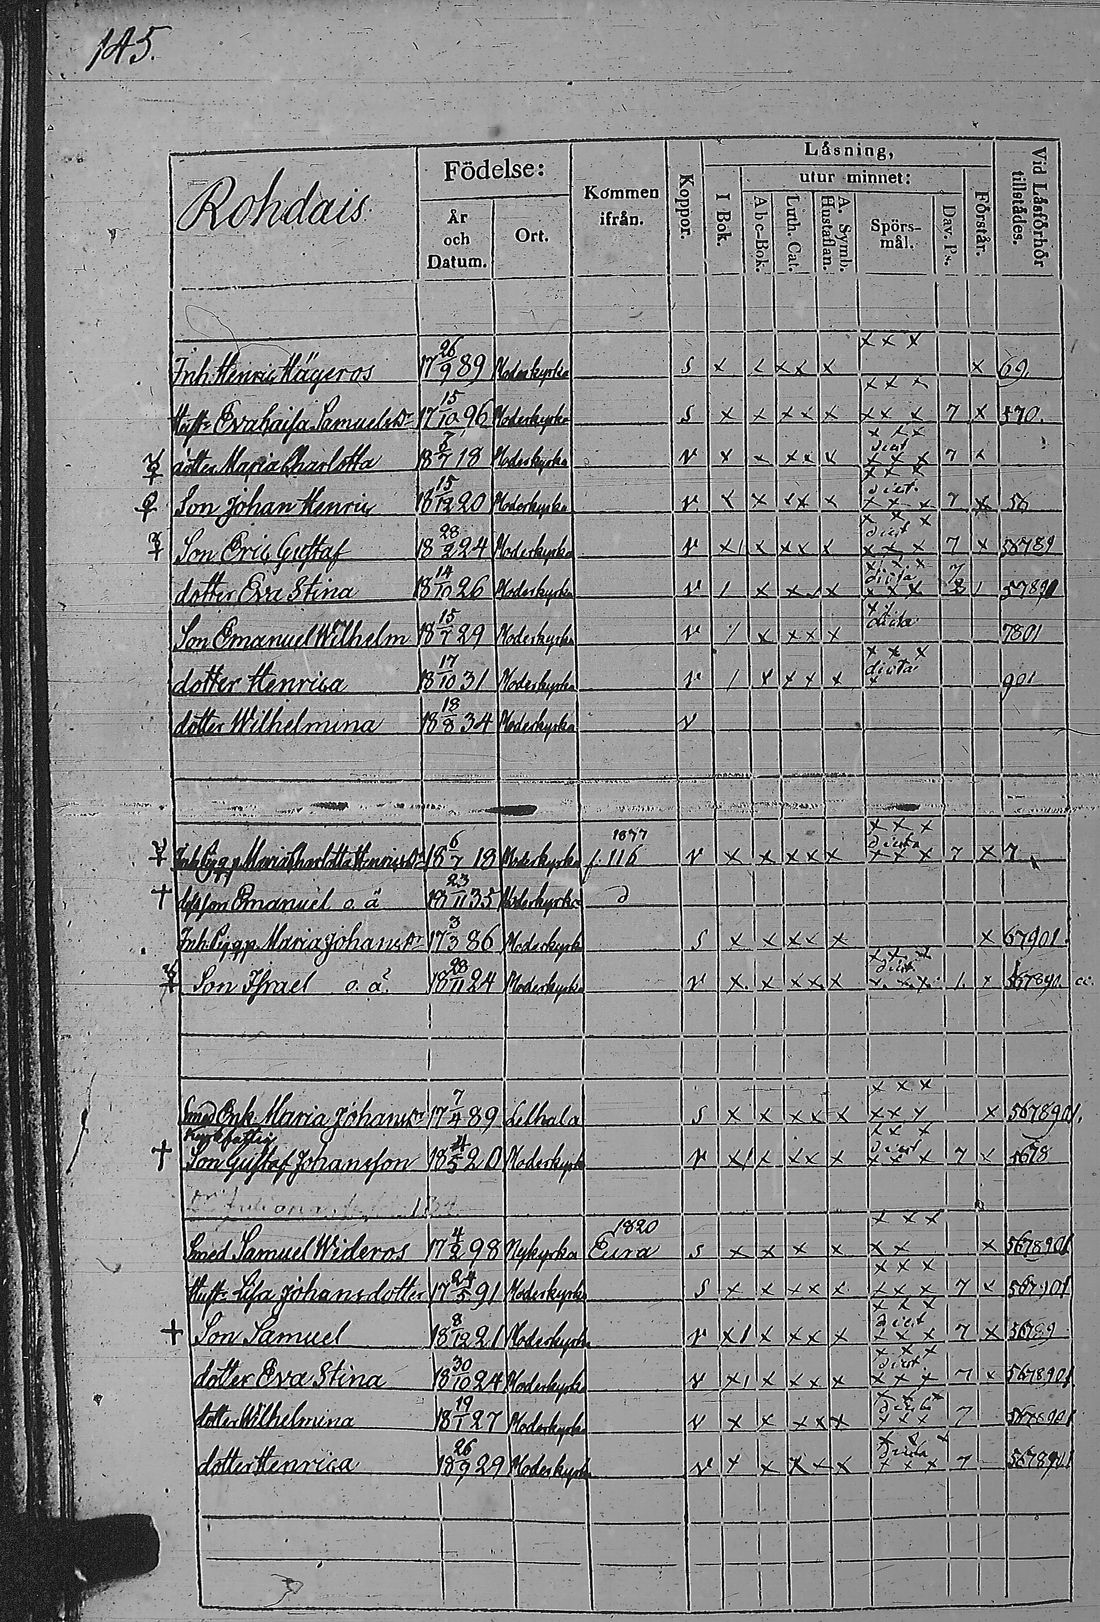 145.
Rohdais
Födelse:
År och Datum.
Ort.
Kommen ifrån.
Koppor.
Läsning,
I Bok.
utur minnet:
Abc-Bok.
Luth. Cat.
A. Symb. Hustaflan.
Spörs-mål.
Dav. Ps.
Förstår.
Vid Läsförhör tillstådes.
x x x
Inh. Henric Hägeros 17 26/9 89 Moderkyrka S x x x x x x 69
x x x
Hust. Eva Caisa Samuelsdr 17 15/10 96 Moderkyrka S x x x x x x x x 7 x 570.
x x x
dotter Maria Charlotta 18 6/7 18 Moderkyrka V x x x x x dict x x x 7 x
x x x
Son Johan Henric 18 15/12 20 Moderkyrka V x x x x x dict x x x 7 x 56
x x x
Son Eric Gustaf 18 28/2 24 Moderkyrka V x x x x x dict x x x 7 x 56789
x x x
dotter Eva Stina 18 14/10 26 Moderkyrka V / x x x x dicta x x x 57891
Son Emanuel Wilhelm 18 15/7 29 Moderkyrka V / x x x x dicta 7801
x x x
dotter Henrica 18 17/10 31 Moderkyrka V / x x x x dicta x 901
dotter Wilhelmina 18 18/8 34 Moderkyrka V
x x x
Inh. Maria Charlotta Henricsdr 18 6/7 18 Moderkyrka f. 116 V x x x x x dicta x x x 7 x 7
† Emanuel o. ä 18 23/11 35 Moderkyrka
Inh. Maria Johansdr 17 3/3 86 Moderkyrk S x x x x x x 67901.
x x x
Son Israel o. ä. 18 28/11 24 Moderkyrka V x x x x x dict x x x 1 x 567890.
x x x
Smed Enk. Maria Johansdr 17 7/4 89 Lethala S x x x x x x x x x 5678901.
x x x
† Son Gustaf Johansson 18 4/5 20 Moderkyrk V x/ x x x x dict x x x 7 x 5678
x x x
Smed Samuel Wideros 17 4/2 98 Nykyrka 1820 Eura S x x x x x x x 5678901
x x x
Hust. Lisa Johansdotter 17 24/5 91 Moderkyrka S x x x x x x x x 7 x 567901
x x x
† Son Samuel 18 8/12 21 Moderkyrka V x/ x x x x dict x x x 7 x 56789
x x x
dotter Eva Stina 18 30/10 24 Moderkyrka V x/ x x x x dict x x x 7 x 5678901
x x x
dotter Wilhelmina 18 19/1 27 Moderkyrka V x x x x x dicta x x x 7 5678901
x x x
dotter Henrica 18 26/9 29 Moderkyrk V x x x x x dicta x x x 7 5678901